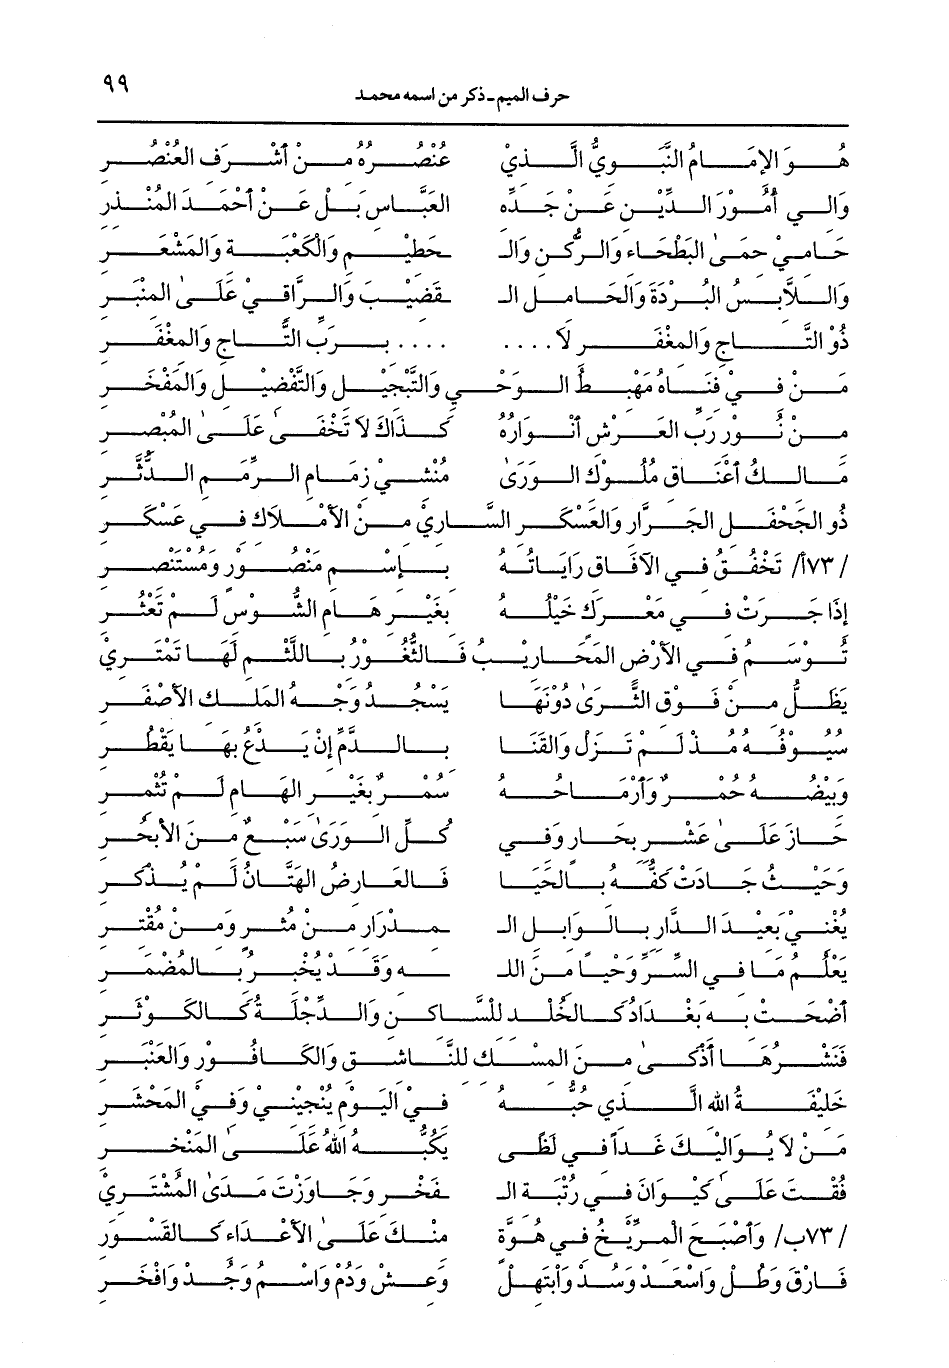 ٩٩
حرف الميم ـ ذكر من اسمه محمد
هُوَ الإمَامُ النَّبَوِيُّ الَّذِيْ عُنْصُرُهُ مِنْ أَشْرَفِ العُنْصُرِ
وَالِي أُمُوْرِ الدِّيْنِ عَنْ جَدِّهِ العَبَّاسِ بَلْ عَنْ أَحْمَدَ المُنْذِرِ
حَامِيْ حِمَىٰ البَطْحَاءِ وَالرُّكْنِ وَالـ ـحَطِيْمِ وَالْكَعْبَةِ وَالمَشْعَرِ
وَاللَّابِسُ البُرْدَةَ وَالحَامِلِ الـ ـقَضِيْبَ وَالرَّاقِيْ عَلَىٰ المِنْبَرِ
ذُوْ التَّاجِ وَالمِغْفَرِ لَا .... .... بِرَبِّ التَّاجِ وَالمِغْفَرِ
مَنْ فِيْ فَنَاهُ مَهْبِطُ الوَحْيِ وَالتَّبْجِيْلِ وَالتَّفْضِيْلِ وَالمَفْخَرِ
مِنْ نُوْرِ رَبِّ العَرْشِ أَنْوَارُهُ كَذَاكَ لاَ تَخْفَىٰ عَلَىٰ المُبْصِرِ
مَالِكُ أَعْنَاقِ مُلُوْكِ الوَرَىٰ مُنْشِيْ زِمَامِ الرِّمَمِ الدُّثَّرِ
ذُو الجَحْفَلِ الجَرَّارِ وَالعَسْكَرِ السَّارِيْ مِنَ الأَمْلاَكِ فِي عَسْكَرِ
/ ٧٣أ/ تَخْفُقُ فِي الآفَاقِ رَايَاتُهُ بِإِسْمِ مَنْصُوْرٍ وَمُسْتَنْصِرِ
إِذَا جَرَتْ فِي مَعْرَكٍ خَيْلُهُ بِغَيْرِ هَامِ الشُّوْسِ لَمْ تَعْثُرِ
تُوْسَمُ فِي الأَرْضِ المَحَارِيْبُ فَالثُّغُوْرُ بِاللَّثْمِ لَهَا تَمْتَرِيْ
يَظَلُّ مِنْ فَوْقِ الثَّرَىٰ دُوْنَهَا يَسْجُدُ وَجْهُ المَلِكِ الأَصْفَرِ
سُيُوْفُهُ مُذْ لَمْ تَزَلْ وَالقَنَا بِالدَّمِ إِنْ يَدْعُ بِهَا يَقْطُرِ
وَبِيْضُهُ حُمْرٌ وَأَرْمَاحُهُ سُمْرٌ بِغَيْرِ الهَامِ لَمْ تُثْمِرِ
حَازَ عَلَىٰ عَشْرِ بِحَارٍ وَفِي كُلِّ الوَرَىٰ سَبْعٌ مِنَ الأَبْحُرِ
وَحَيْثُ جَادَتْ كَفُّهُ بِالحَيَا فَالعَارِضُ الهَتَّانُ لَمْ يُذْكَرِ
يُغْنِيْ بَعِيْدَ الدَّارِ بِالوَابِلِ الـ ـمِدْرَارِ مِنْ مُثْرٍ وَمِنْ مُقْتِرِ
يَعْلَمُ مَا فِي السِّرِّ وَحْياً مِنَ اللـ ـهِ وَقَدْ يُخْبِرُ بِالمُضْمَرِ
أَضْحَتْ بِهِ بَغْدَادُ كَالخُلْدِ لِلسَّاكِنِ وَالدِّجْلَةُ كَالكَوْثَرِ
فَنَشْرُهَا أَذْكَىٰ مِنَ المِسْكِ لِلنَّاشِقِ وَالكَافُوْرِ وَالعَنْبَرِ
خَلِيْفَةُ اللهِ الَّذِي حُبُّهُ فِيْ اليَوْمِ يُنْجِيْنِيْ وَفِيْ المَحْشَرِ
مَنْ لاَ يُوَالِيْكَ غَداً فِي لَظًى يَكُبُّهُ اللهُ عَلَىٰ المَنْخِرِ
فُقْتَ عَلَىٰ كَيْوَانَ فِي رُتْبَةِ الـ ـفَخْرِ وَجَاوَزْتَ مَدَىٰ المُشْتَرِيْ
/ ٧٣ب/ وَأَصْبَحَ الْمِرِّيْخُ فِي هُوَّةٍ مِنْكَ عَلَىٰ الأَعْدَاءِ كَالقَسْوَرِ
فَارْقَ وَطُلْ وَاسْعَدْ وَسُدْ وَابْتَهِلْ وَعِشْ وَدُمْ وَاسْمُ وَجُدْ وَافْخَرِ